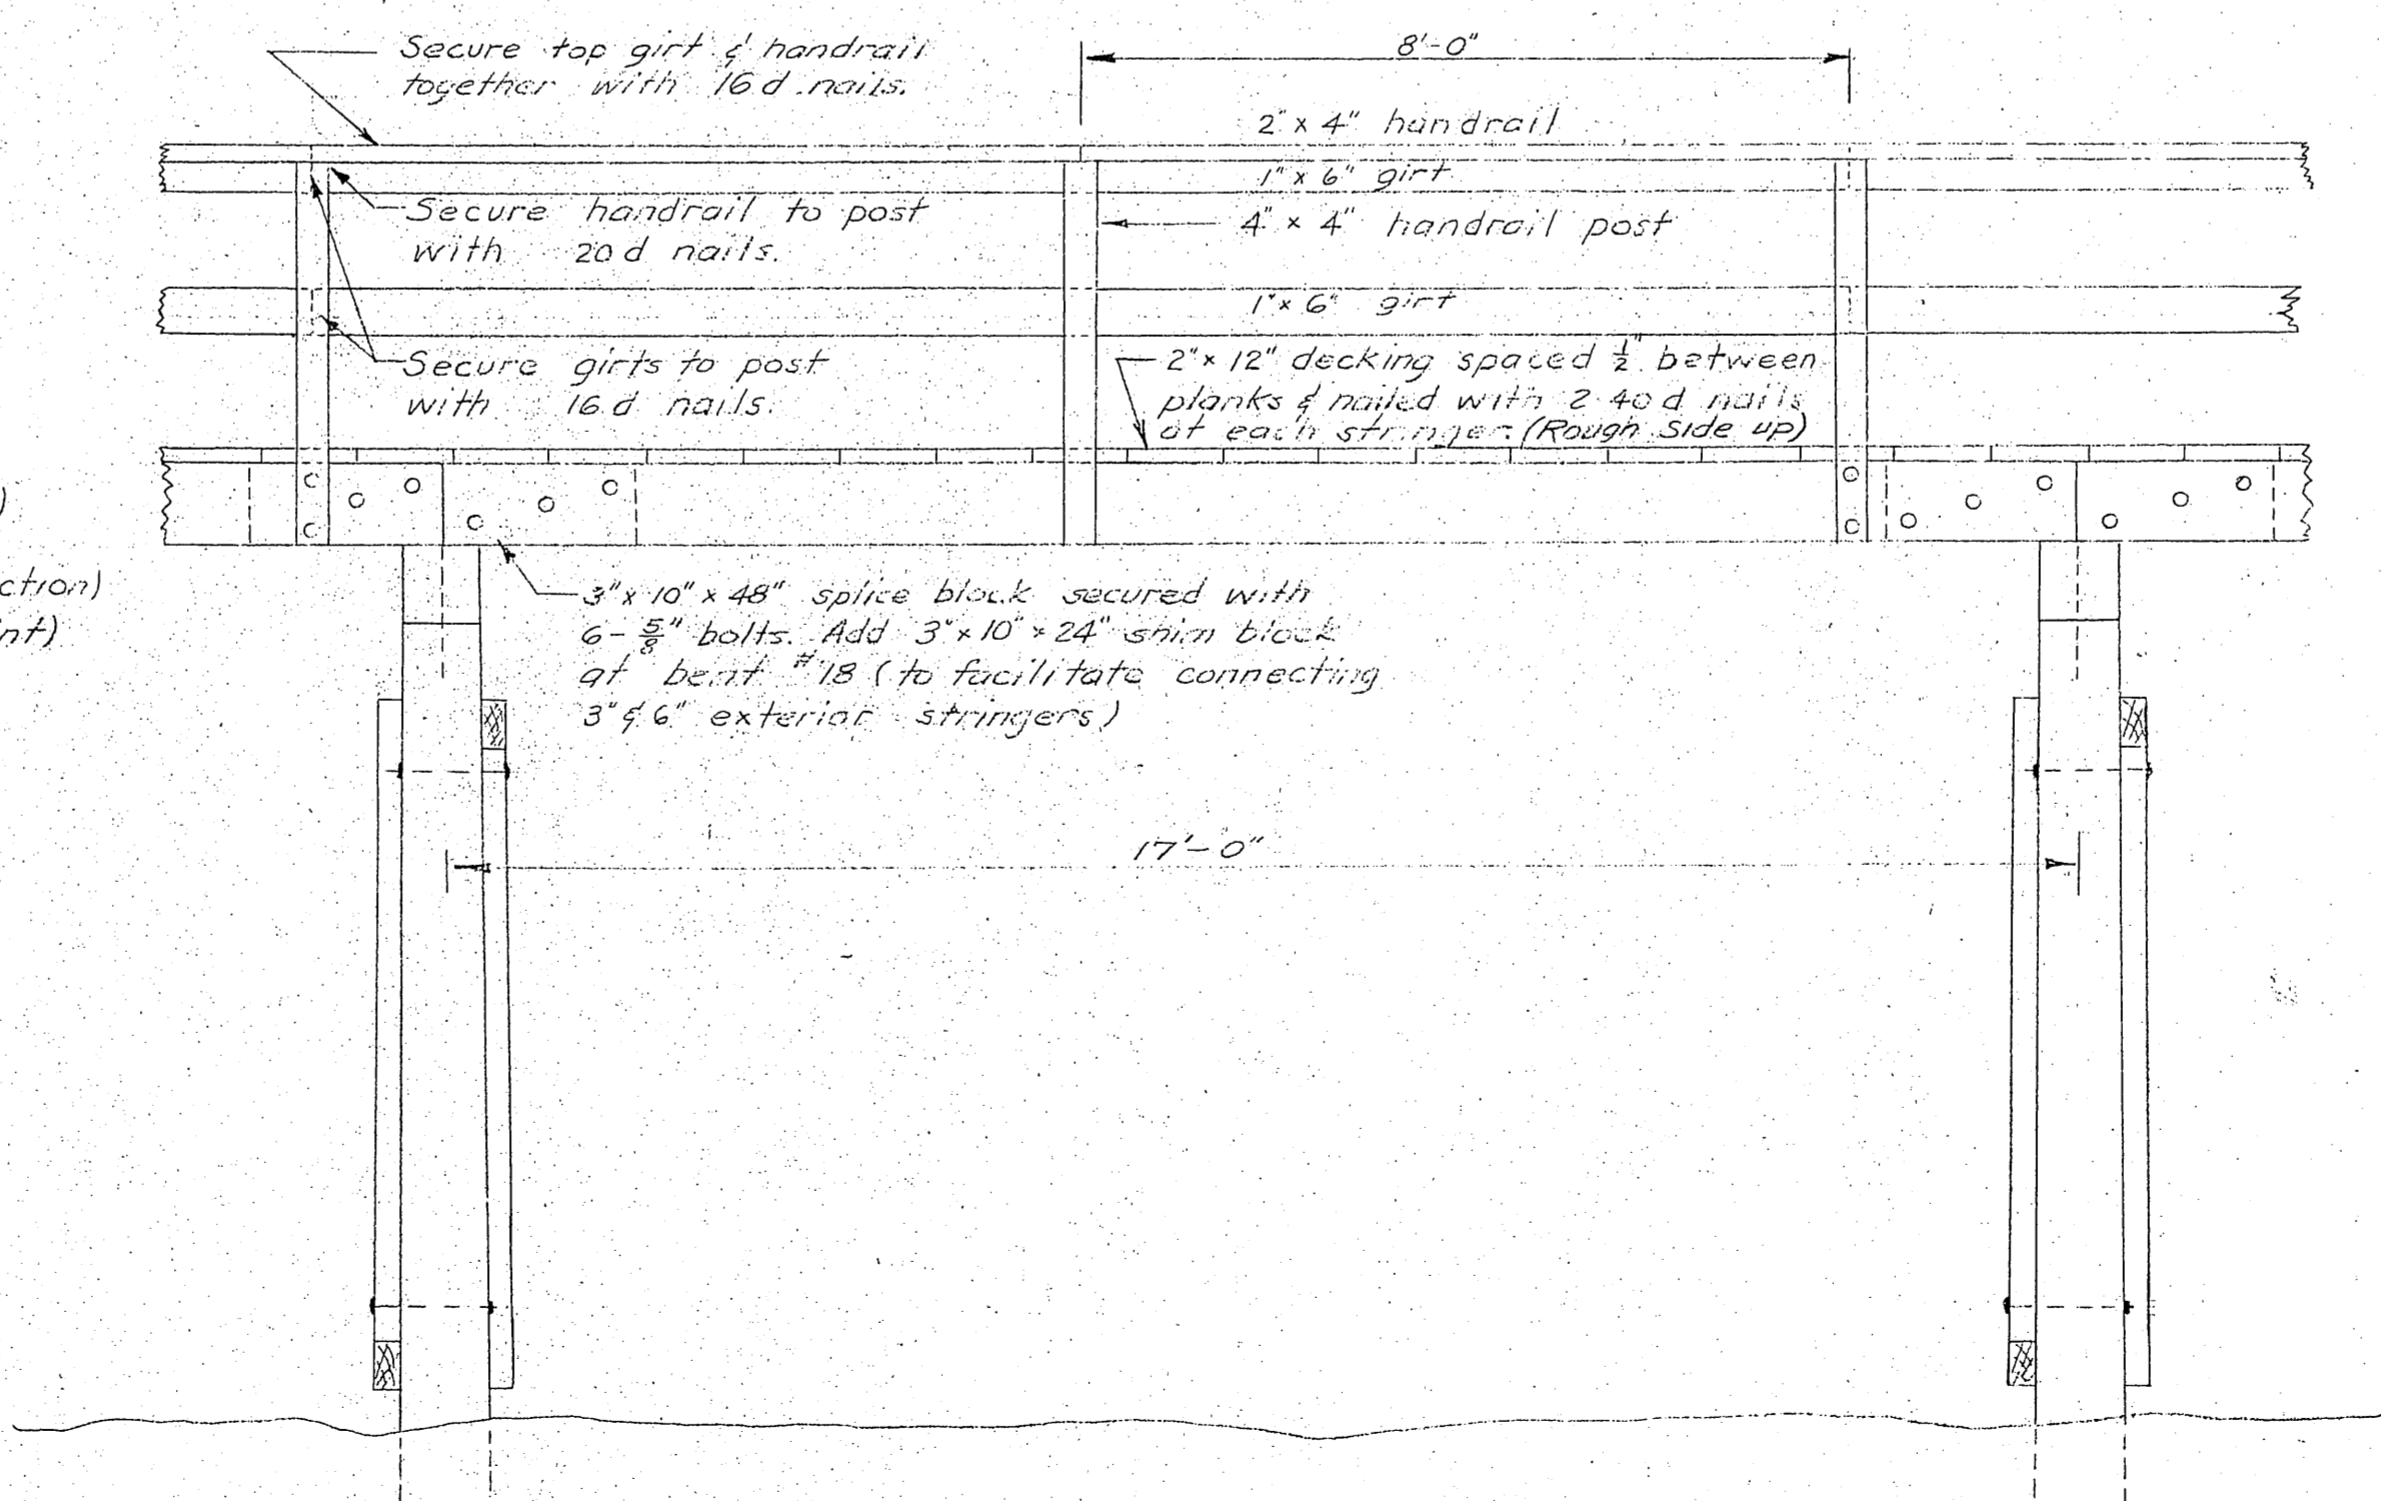 Secure top girt & handrail
together with 16d nails.
8'-0"
2" x 4" handrail
1" x 6" girt
Secure handrail to post
with 20d nails.
4" x 4" handrail post
1" x 6" girt
Secure girts to post
with 16d nails.
2" x 12" decking spaced ½" between
planks & nailed with 2 40d nails
at each stringer. (Rough side up)
)
ction)
nt)
3" x 10" x 48" splice block secured with
6 - ⅝" bolts. Add 3" x 10" x 24" shim block
at bent #18 (to facilitate connecting
3" & 6" exterior stringers)
17'-0"